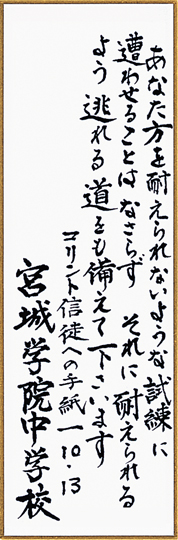 あなた方を耐えられないような試練に
遭わせることはなさらず　それに耐えられる
よう　逃れる道をも備えて下さいます
コリント信徒への手紙一10・13
宮城学院中学校